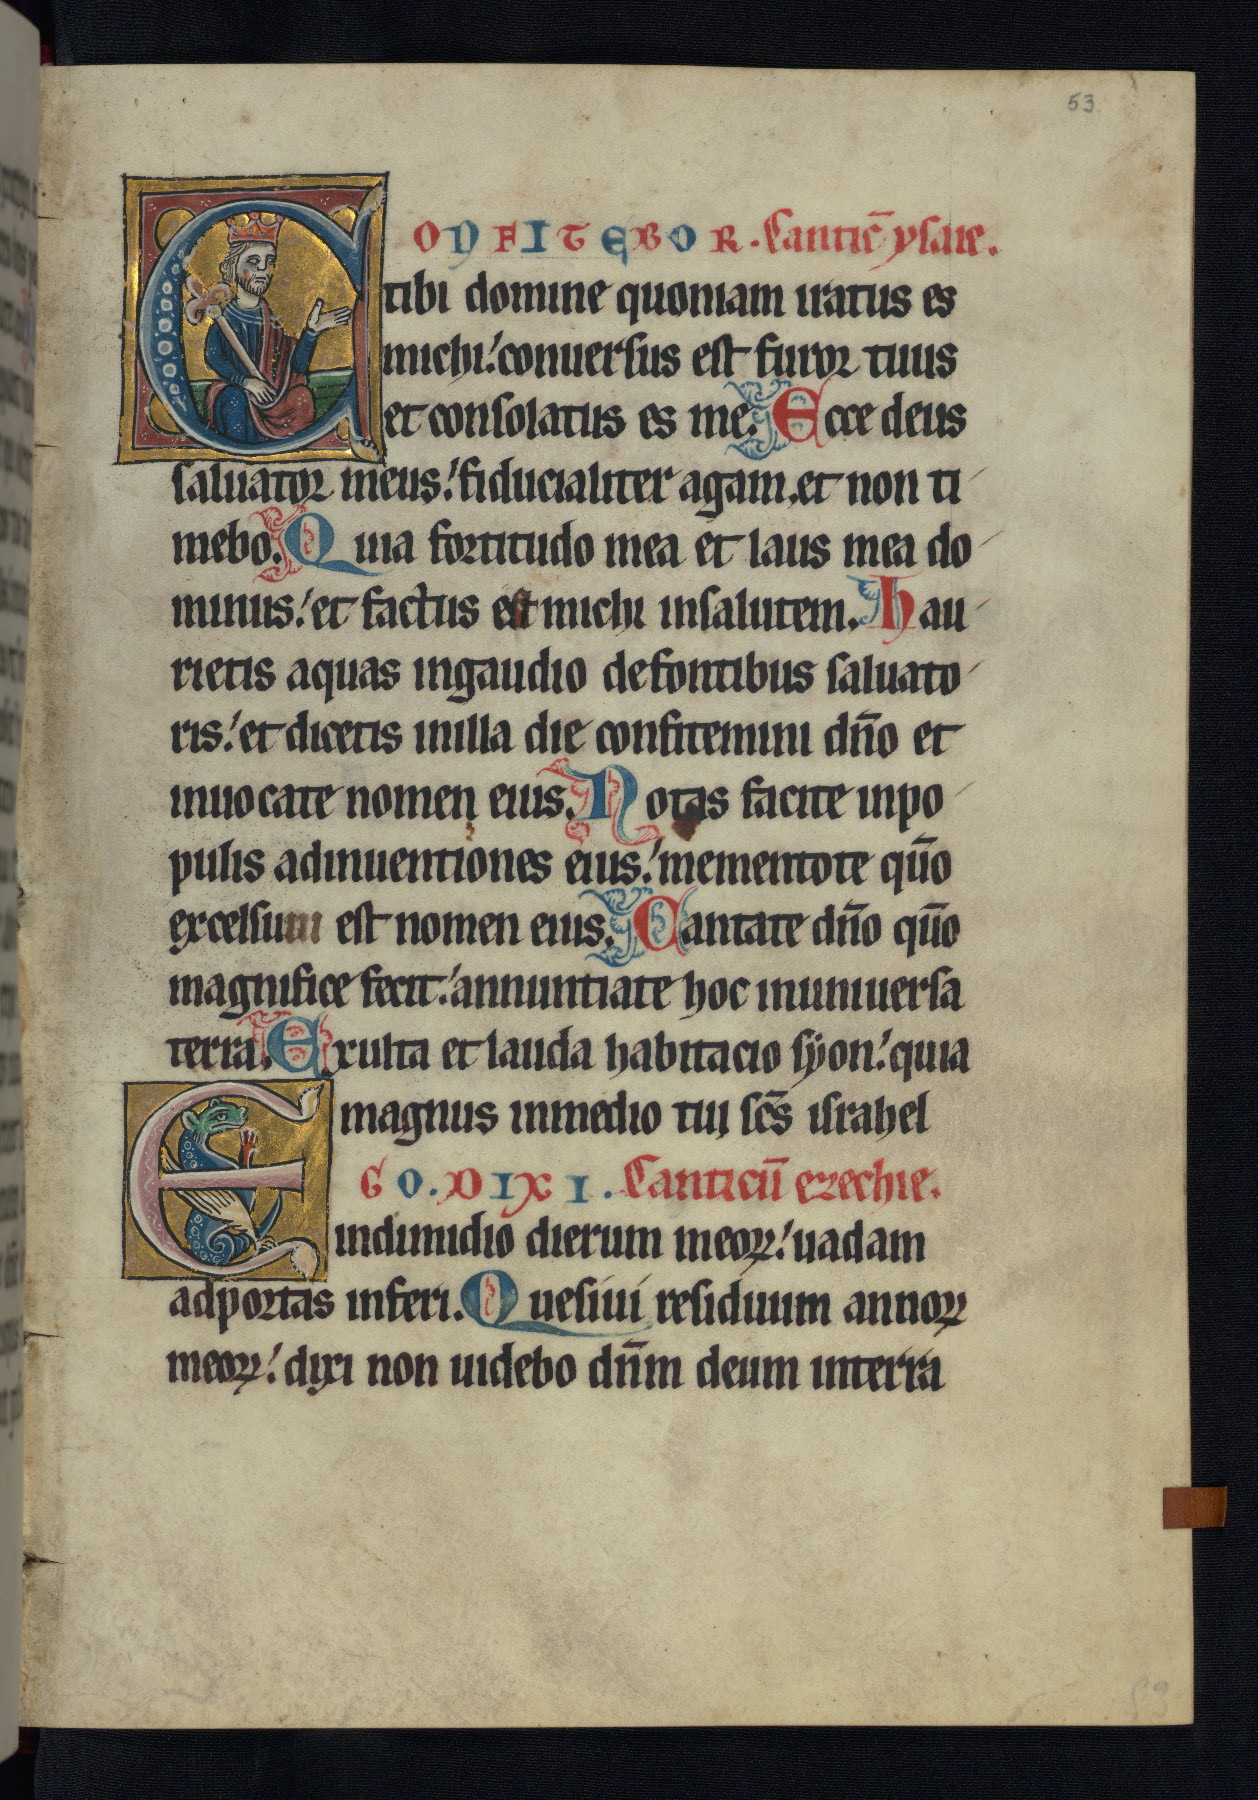 53
CONFITEBOR. Cantic̄ ysaie.
tibi domine quoniam iratus es
michi: conuersus est furor tuus
et consolatus es me. Ecce deus
saluator meus: fiducialiter agam, et non ti
mebo. Quia fortitudo mea et laus mea do
minus: et factus est michi insalutem. Hau
rietis aquas ingaudio defontibus saluato
ris: et dicetis inilla die confitemini dn̄o et
inuocate nomen eius. Notas facite inpo
pulis adinuentiones eius: mementote qūo
excelsum est nomen eius. Cantate dn̄o qūo
magnifice fecit: annuntiate hoc inuniuersa
terra. Exulta et lauda habitacio syon: quia
magnus inmedio tui sc̄s israhel
EGO. DIXI. Canticū ezechie.
indimidio dierum meoꝝ: uadam
adportas inferi. Quesiui residuum annoꝝ
meoꝝ: dixi non uidebo dn̄m deum interra
53